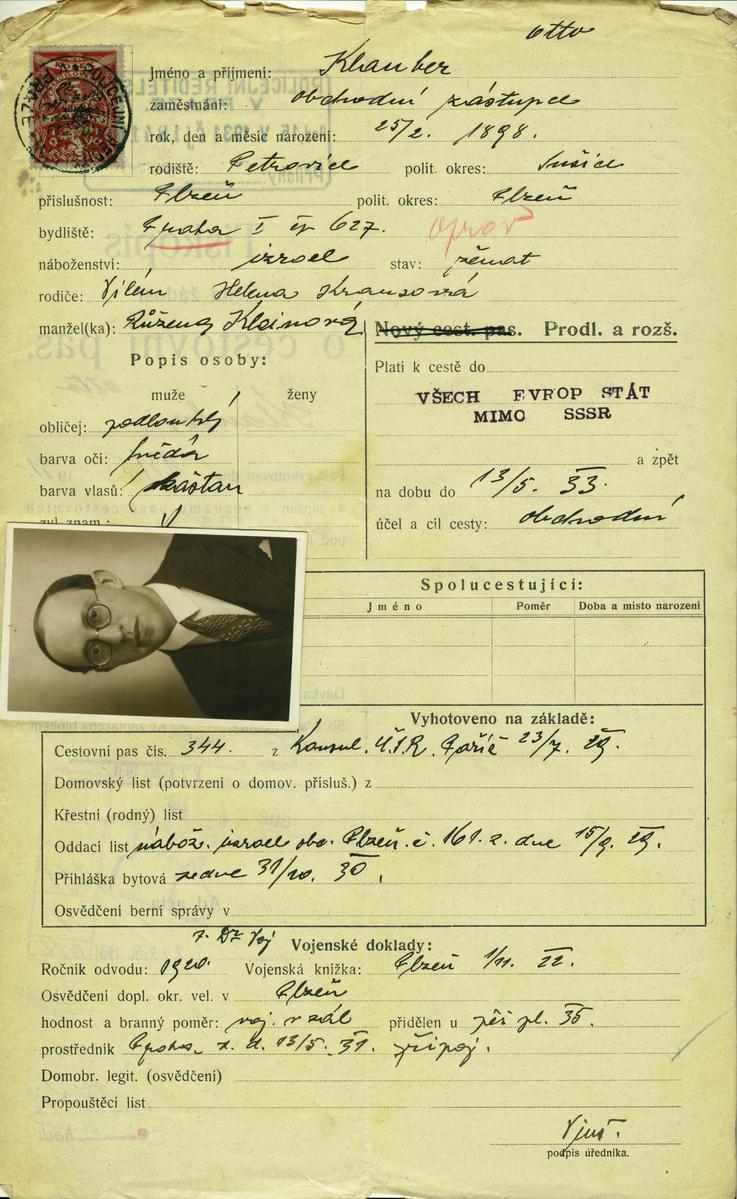 Otto
Jméno a přijmení: Klauber
zaměstnání: obchodní zástupce
rok, den a měsíc narození: 25/2. 1898.
rodiště: Petrovice polit. okres: Sušice
příslušnost: Plzeň polit. okres: Plzeň
bydliště: Praha I čp 627.
náboženství: israel stav: ženat
rodiče: Vilém Helena Krausová
manžel(ka): Růžena Kleinová
Nový cest. pas. Prodl. a rozš.
Popis osoby:
muže ženy
obličej: podlouhlý
barva očí: hnědá
barva vlasů: kaštan
zvl. znam.:
Platí k cestě do
VŠECH EVROP STÁT
MIMO SSSR
a zpět
na dobu do 13/5. 33.
účel a cíl cesty: obchodní
Spolucestující:
Jméno Poměr Doba a místo narození
Vyhotoveno na základě:
Cestovní pas čís. 344. z Konsul. Č.S.R. Paříž 23/7. 29.
Domovský list (potvrzení o domov. přísluš.) z
Křestní (rodný) list
Oddací list nábož. israel obc. Plzeň č. 161 z dne 15/9. 29.
Přihláška bytová ze dne 31/10. 30.
Osvědčení berní správy v
Vojenské doklady:
Ročník odvodu: 1920. Vojenská knížka: Plzeň 1/11. 22.
Osvědčení dopl. okr. vel. v Plzeň
hodnost a branný poměr: voj. v zál přidělen u pěš pl. 35.
prostředník Praha z. d. 13/5. 31. připoj.
Domobr. legit. (osvědčení)
Propouštěcí list
podpis úředníka.